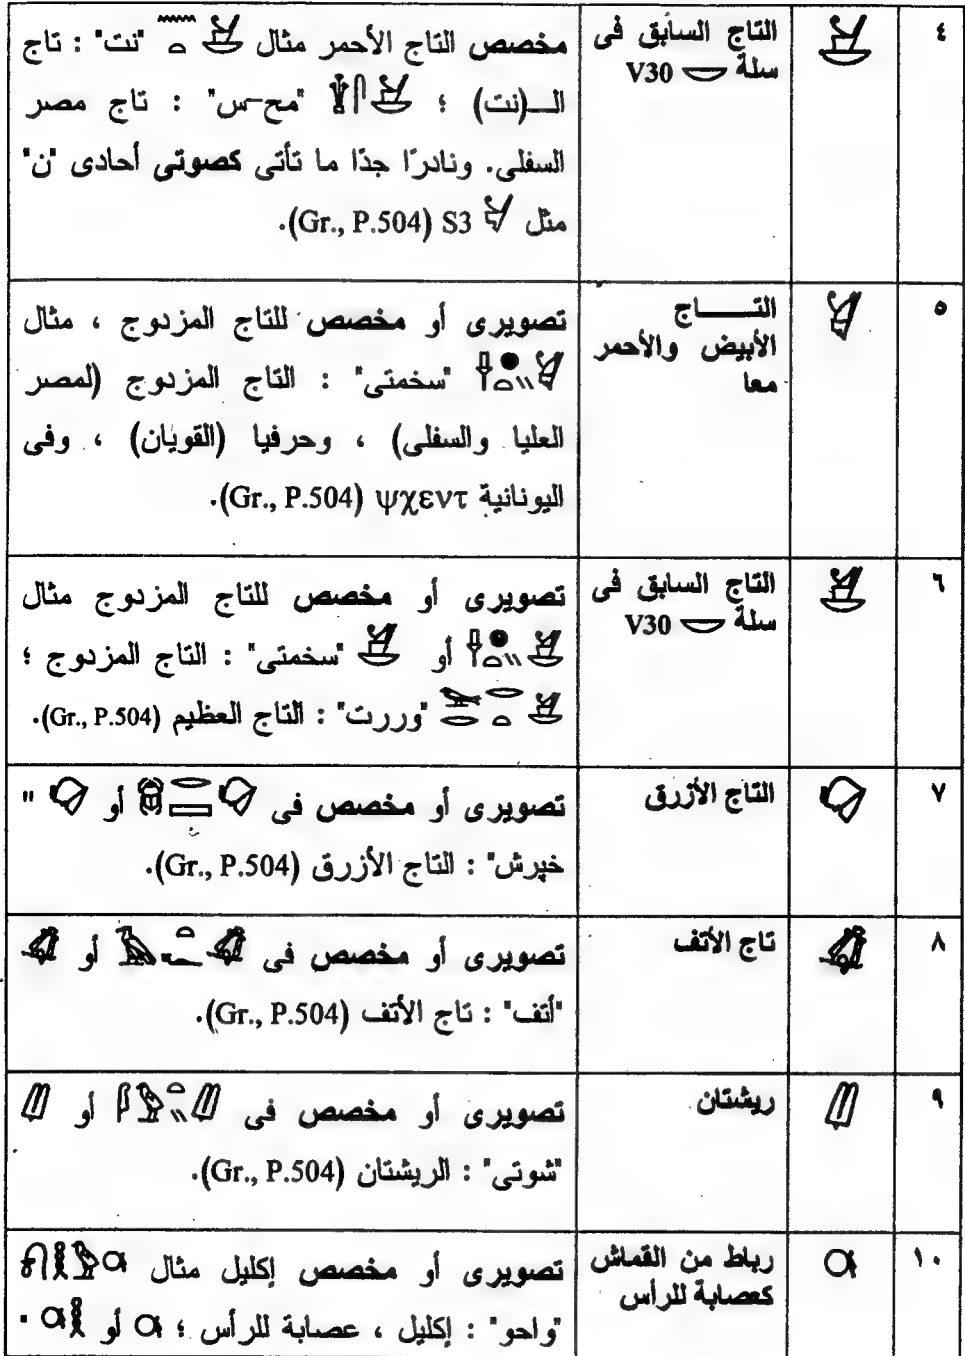 ٤
التاج السابق فى
سلة 𓎟 V30
مخصص التاج الأحمر مثال "نت" : تاج
الـ(نت) ؛ "مح-س" : تاج مصر
السفلى. ونادرًا جدًا ما تأتى كصوتى أحادى "ن"
مثل S3 (Gr., P.504).
٥
التـــاج
الأبيض والأحمر
معا
تصويرى أو مخصص للتاج المزدوج ، مثال
"سخمتى" : التاج المزدوج (لمصر
العليا والسفلى) ، وحرفيا (القويان) ، وفى
اليونانية ψχεντ (Gr., P.504).
٦
التاج السابق فى
سلة 𓎟 V30
تصويرى أو مخصص للتاج المزدوج مثال
أو "سخمتى" : التاج المزدوج ؛
"وررت" : التاج العظيم (Gr., P.504).
٧
التاج الأزرق
تصويرى أو مخصص فى أو "
خپرش" : التاج الأزرق (Gr., P.504).
٨
تاج الأتف
تصويرى أو مخصص فى أو
"أتف" : تاج الأتف (Gr., P.504).
٩
ريشتان
تصويرى أو مخصص فى أو
"شوتى" : الريشتان (Gr., P.504).
١٠
رباط من القماش
كعصابة للرأس
تصويرى أو مخصص إكليل مثال
"واحو" : إكليل ، عصابة للرأس ؛ أو "